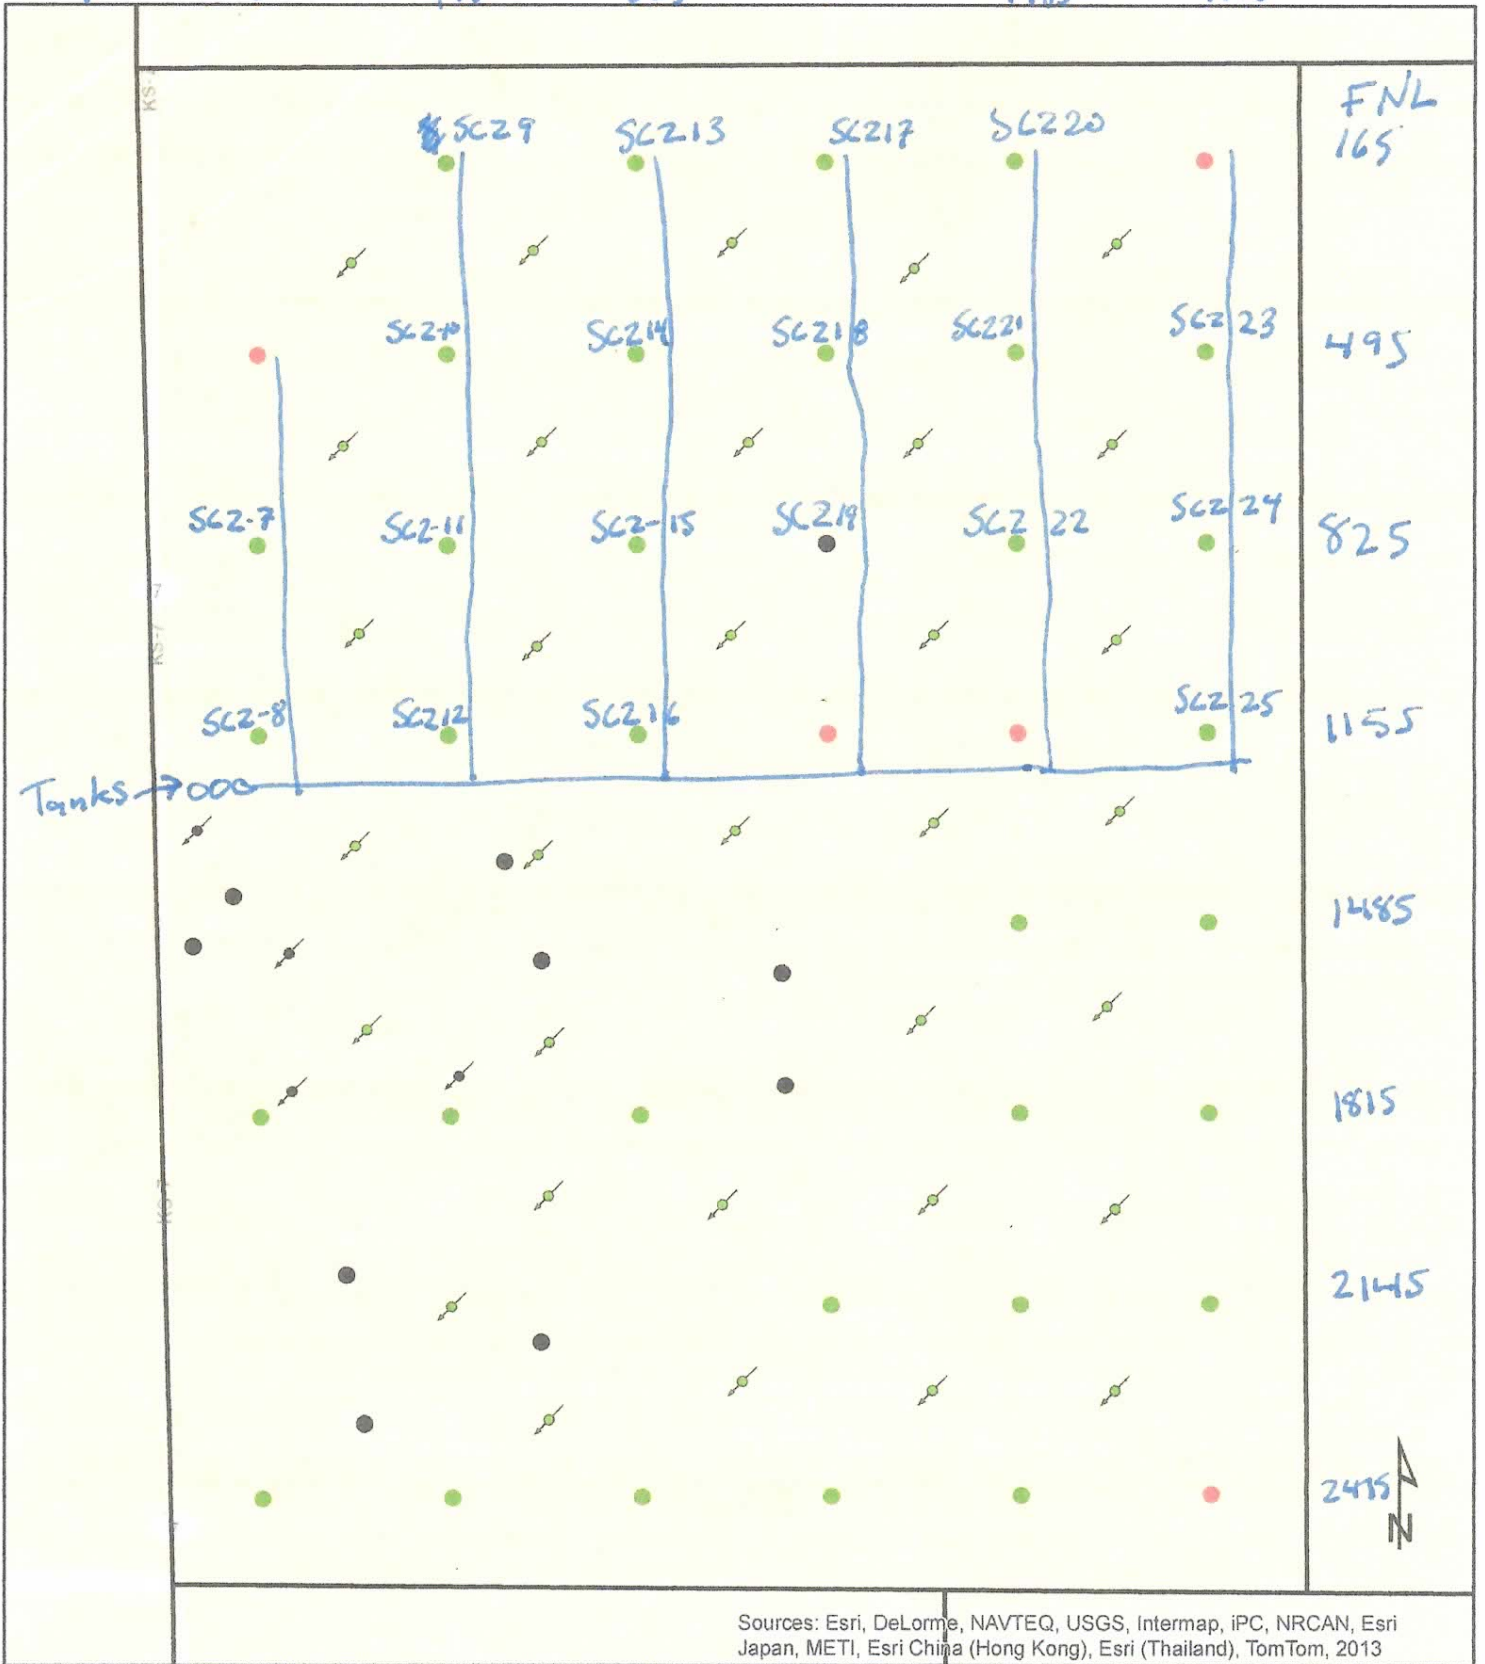 FNL
SCZ9 SCZ13 SCZ17 SCZ20 165
SCZ-10 SCZ14 SCZ18 SCZ21 SCZ 23 495
SCZ-7 SCZ-11 SCZ-15 SCZ19 SCZ 22 SCZ 24 825
SCZ-8 SCZ12 SCZ16 SCZ 25 1155
Tanks
1485
1815
2145
2475
N
Sources: Esri, DeLorme, NAVTEQ, USGS, Intermap, iPC, NRCAN, Esri
Japan, METI, Esri China (Hong Kong), Esri (Thailand), TomTom, 2013